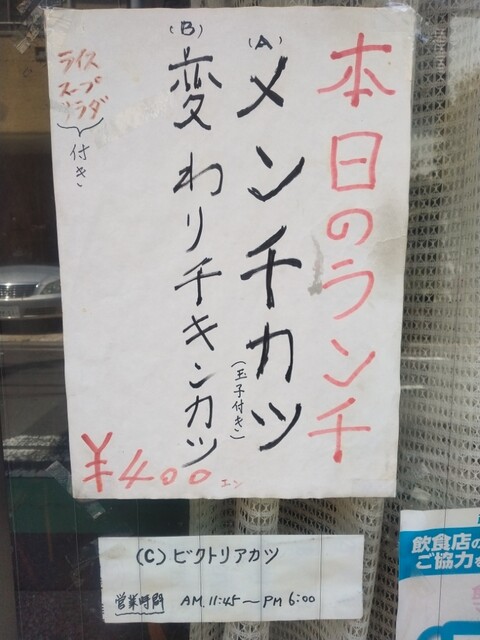 本日のランチ
(A)
メンチカツ
(玉子付き)
(B)
変わりチキンカツ
ライス
スープ
サラダ
付き
¥400エン
(C)ビクトリアカツ
営業時間 AM.11:45〜PM6:00
飲食店の
ご協力を